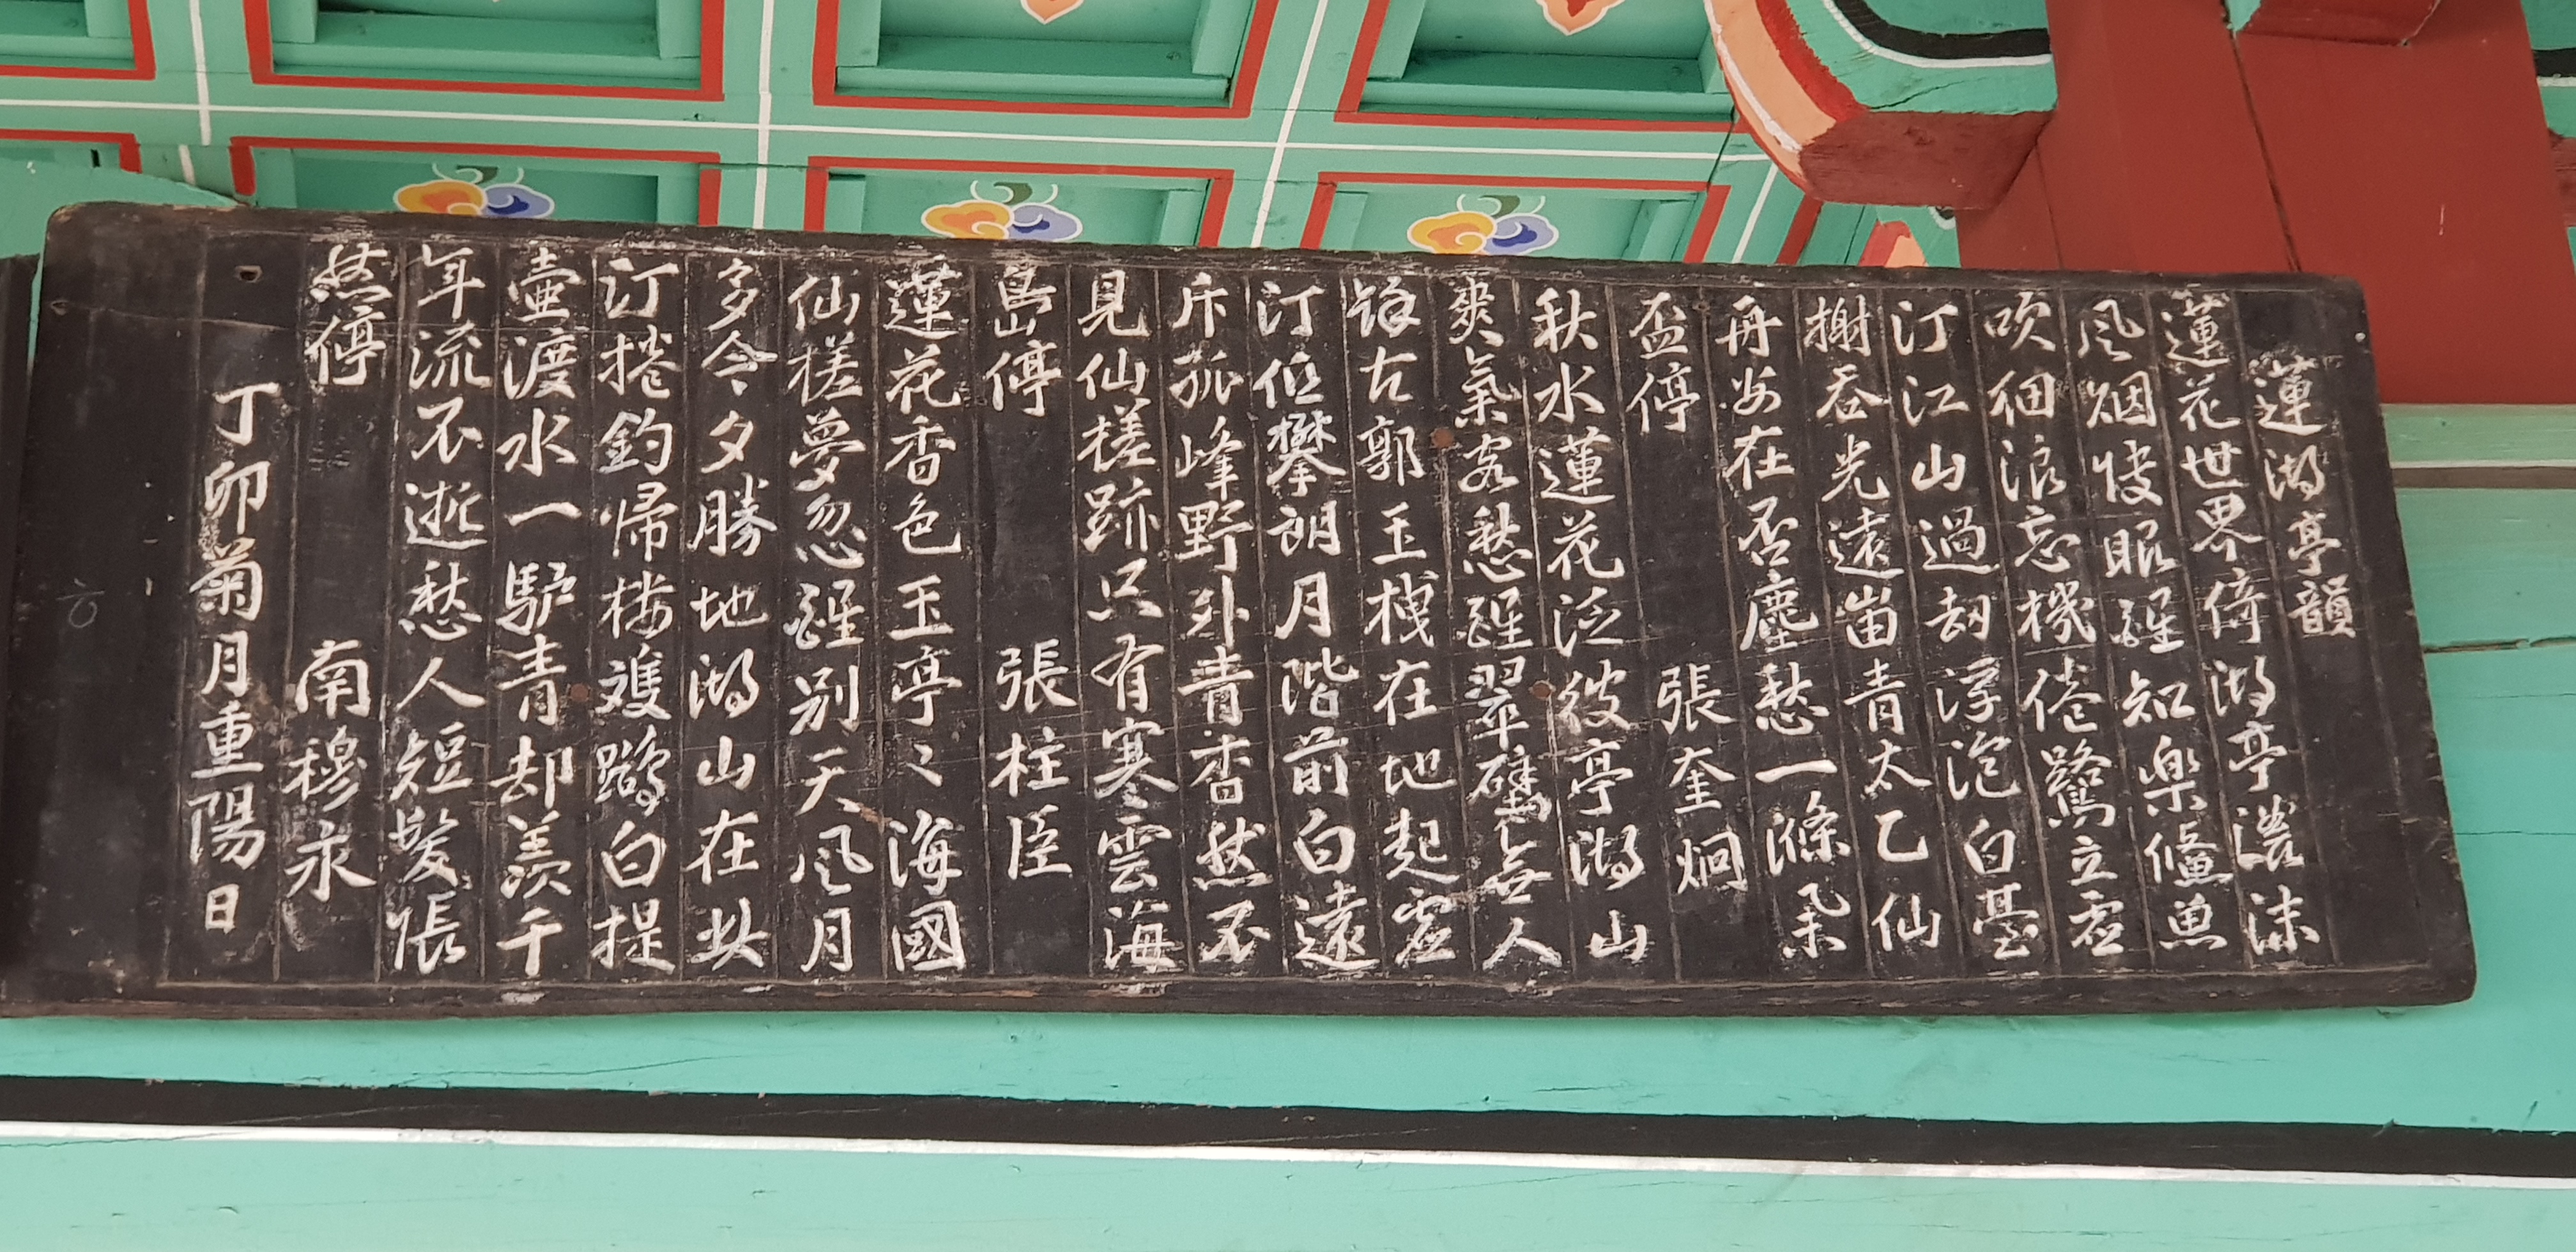 蓮湖亭韻
蓮花世界倚湖亭濃沫
風烟快眼醒知樂鱸魚
吹細浪忘機倦鷺立虛
汀江山過刧浮泡白臺
榭吞光遠峀青太乙仙
舟安在否塵愁一滌
盃停 張奎炯
秋水蓮花泛彼亭湖山
爽氣客愁醒翠壁無人
古郭玉棧在地起虛
汀低攀朗月階前白遠
斥孤峰野外青杳然不
見仙槎跡只有寒雲海
島停 張柱臣
蓮花香色玉亭〻海國
仙槎夢忽醒別天風月
多今夕勝地湖山在此
汀捲釣帰楼雙鷗白提
壷渡水一馿青却羨千
年流不逝愁人短髮悵
然停 南穆永
丁卯菊月重陽日